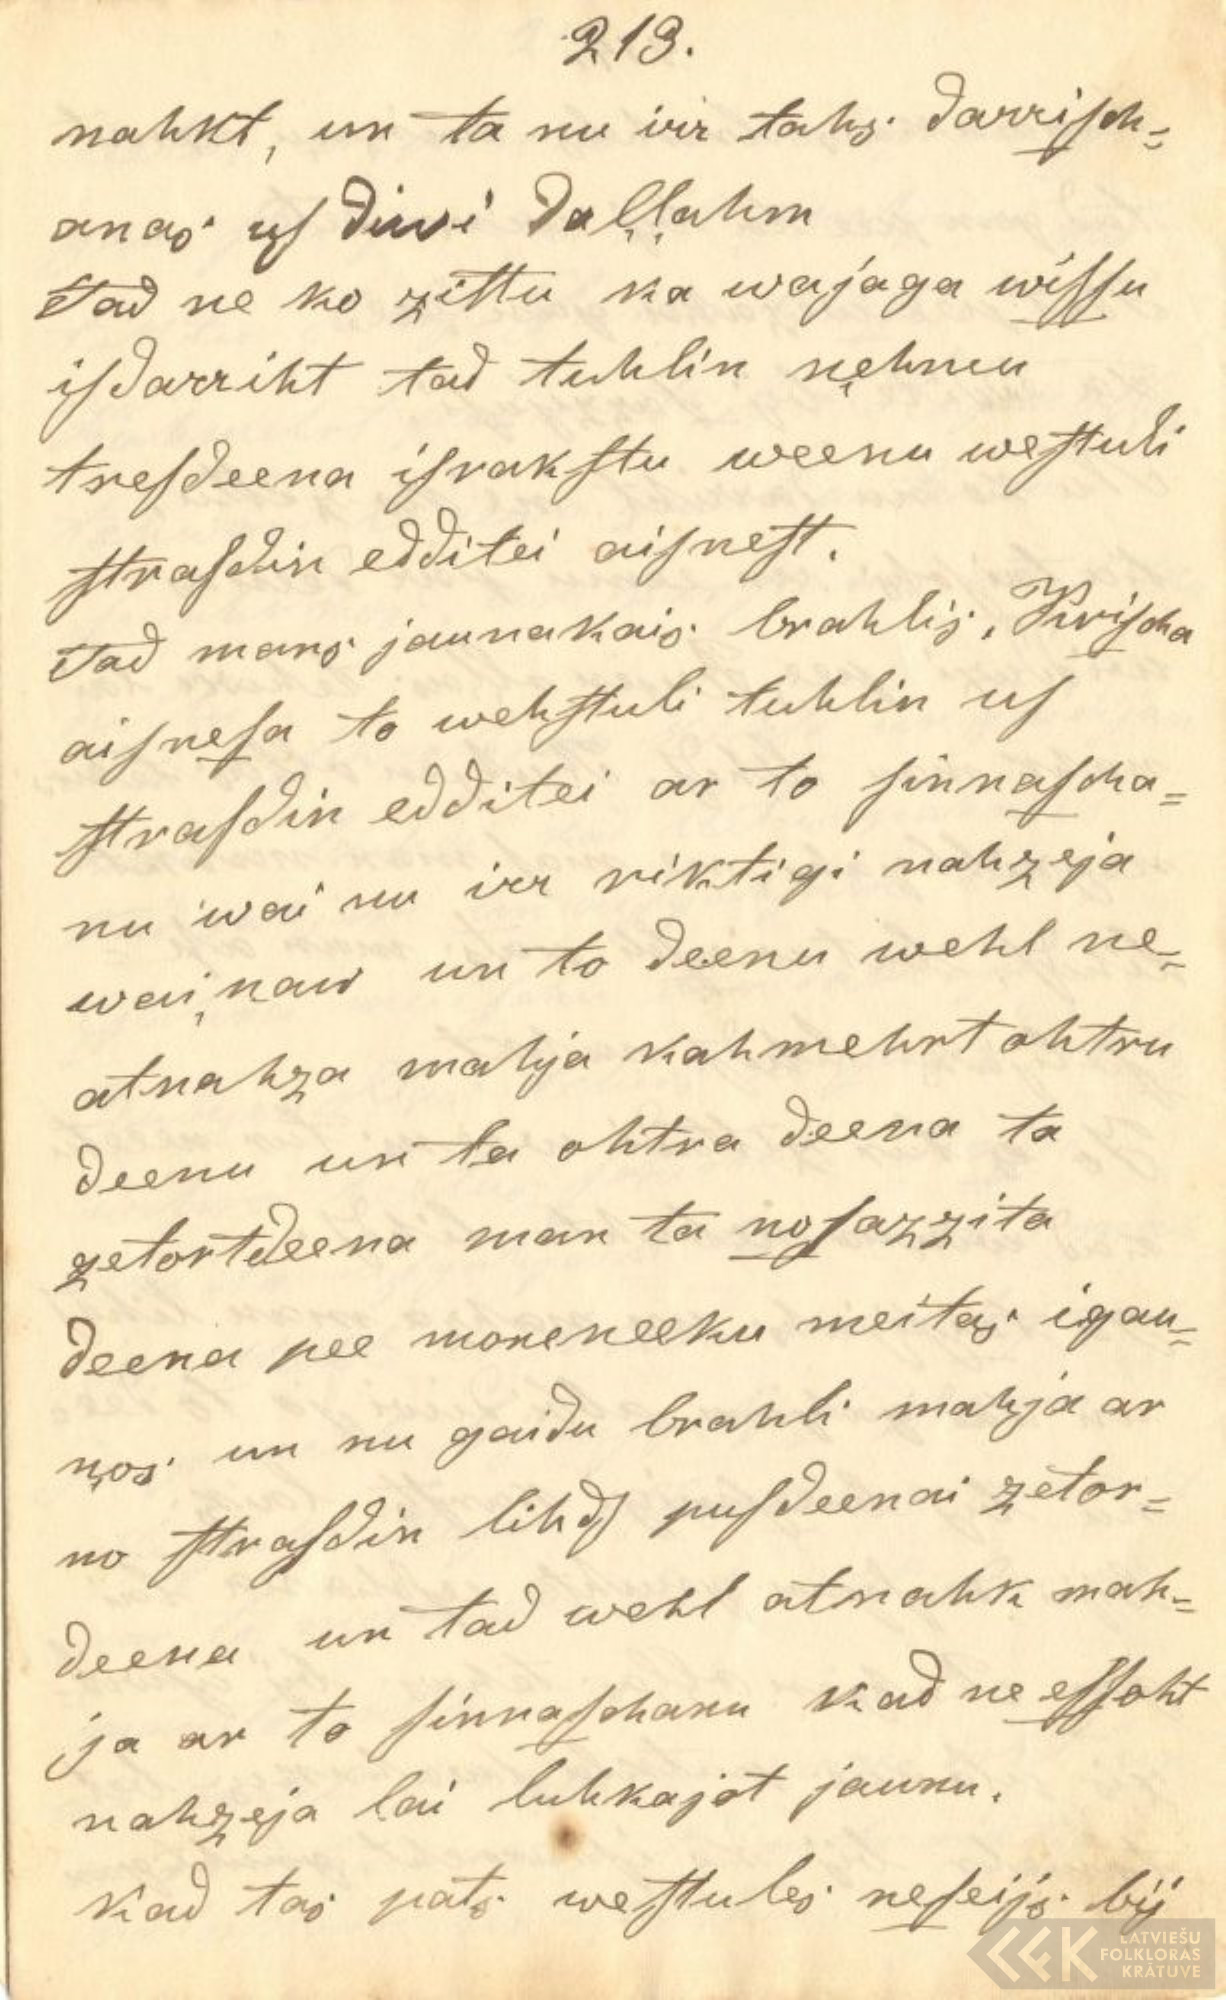 213.
nahkt, un ta nu irr tahs darriſch=
anas uſ diwi daļļahm
Tad ne ko zittu ka wajaga wiſſu
iſdarriht tad tuhlin ņehmu
treſdeena iſrakſtu weenu weſtuli
ſtraſdin edditei aiſneſt.
Tad mans jaunakais brahlis, Kriſcha
aiſneſa to wehſtuli tuhlin uſ
ſtraſdin edditei ar to ſinnaſcha=
nu wai nu irr riktigi nahzeja
wai ņaw un to deenu wehl ne=
atnahza mahja kahmehrt ohtru
deenu un ta ohtra deena ta
zetortdeena man ta noſazzita
deena pee moneneeku meitas igau=
ņos un nu gaidu brahli mahja ar
no ſtraſdin lihdſ puſdeenai zetor=
deena un tad wehl atnahk mah=
ja ar to ſinnaſchanu kad ne eſſoht
nahzeja lai luhkajot jaunu.
kad tas pats weſtules neſeijs bij
LATVIEŠU
FOLKLORAS
KRĀTUVE